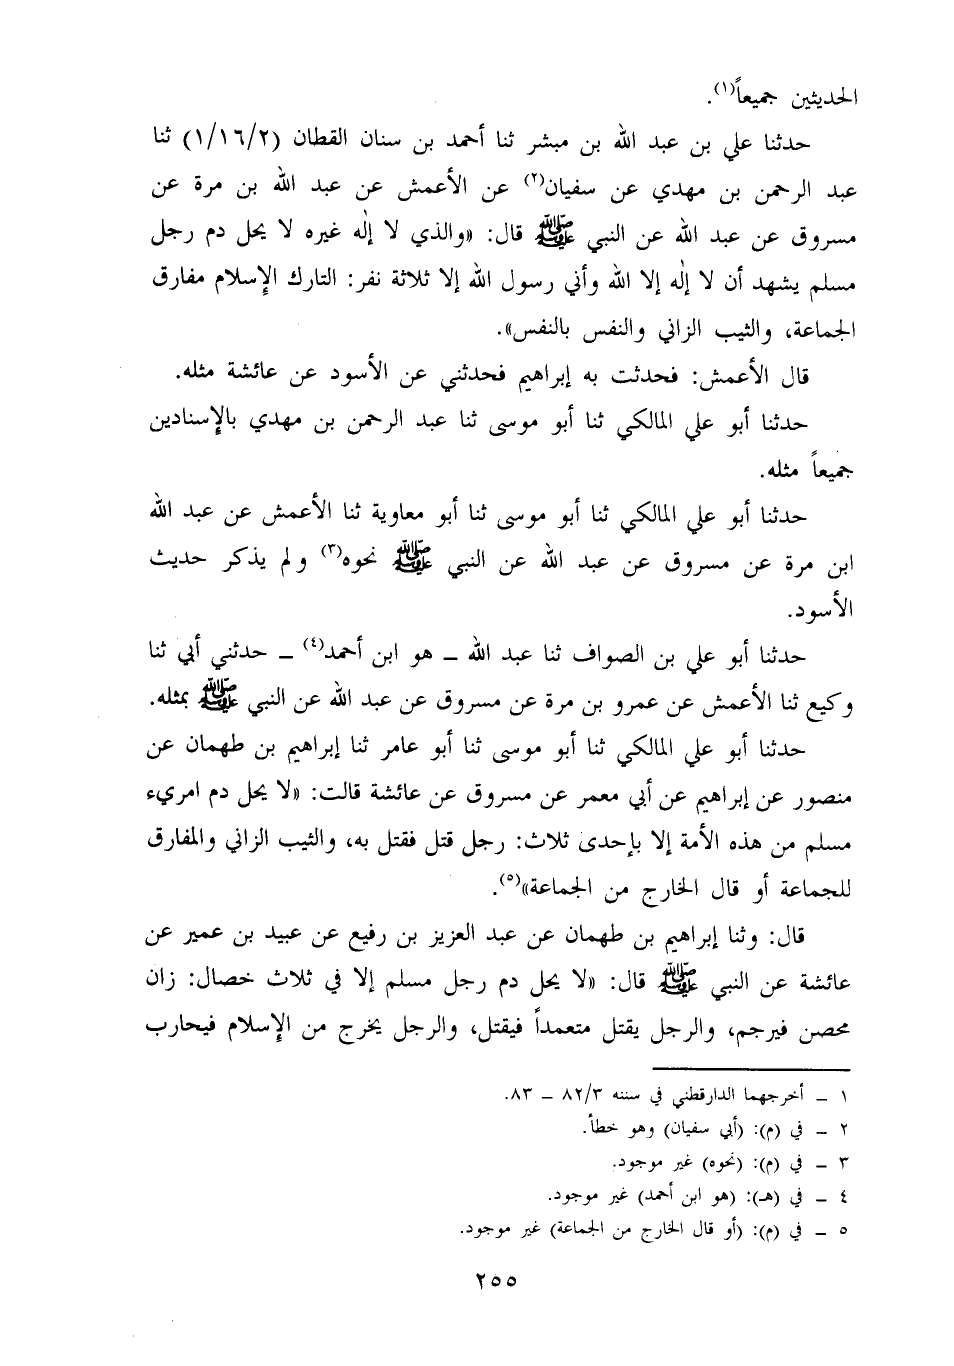 الحديثين جميعاً(١).
حدثنا علي بن عبد الله بن مبشر ثنا أحمد بن سنان القطان (١/١٦/٢) ثنا
عبد الرحمن بن مهدي عن سفيان(٢) عن الأعمش عن عبد الله بن مرة عن
مسروق عن عبد الله عن النبي ﷺ قال: «والذي لا إله غيره لا يحل دم رجل
مسلم يشهد أن لا إله إلا الله وأني رسول الله إلا ثلاثة نفر: التارك الإسلام مفارق
الجماعة، والثيب الزاني والنفس بالنفس».
قال الأعمش: فحدثت به إبراهيم فحدثني عن الأسود عن عائشة مثله.
حدثنا أبو علي المالكي ثنا أبو موسى ثنا عبد الرحمن بن مهدي بالإسنادين
جميعاً مثله.
حدثنا أبو علي المالكي ثنا أبو موسى ثنا أبو معاوية ثنا الأعمش عن عبد الله
ابن مرة عن مسروق عن عبد الله عن النبي ﷺ نحوه(٣) ولم يذكر حديث
الأسود.
حدثنا أبو علي بن الصواف ثنا عبد الله ــ هو ابن أحمد(٤) ــ حدثني أبي ثنا
وكيع ثنا الأعمش عن عمرو بن مرة عن مسروق عن عبد الله عن النبي ﷺ بمثله.
حدثنا أبو علي المالكي ثنا أبو موسى ثنا أبو عامر ثنا إبراهيم بن طهمان عن
منصور عن إبراهيم عن أبي معمر عن مسروق عن عائشة قالت: «لا يحل دم امريء
مسلم من هذه الأمة إلا بإحدى ثلاث: رجل قتل فقتل به، والثيب الزاني والمفارق
للجماعة أو قال الخارج من الجماعة»(٥).
قال: وثنا إبراهيم بن طهمان عن عبد العزيز بن رفيع عن عبيد بن عمير عن
عائشة عن النبي ﷺ قال: «لا يحل دم رجل مسلم إلا في ثلاث خصال: زان
محصن فيرجم، والرجل يقتل متعمداً فيقتل، والرجل يخرج من الإسلام فيحارب
١ ــ أخرجهما الدارقطني في سننه ٨٢/٣ ــ ٨٣.
٢ ــ في (م): (أبي سفيان) وهو خطأ.
٣ ــ في (م): (نحوه) غير موجود.
٤ ــ في (هـ): (هو ابن أحمد) غير موجود.
٥ ــ في (م): (أو قال الخارج من الجماعة) غير موجود.
٢٥٥